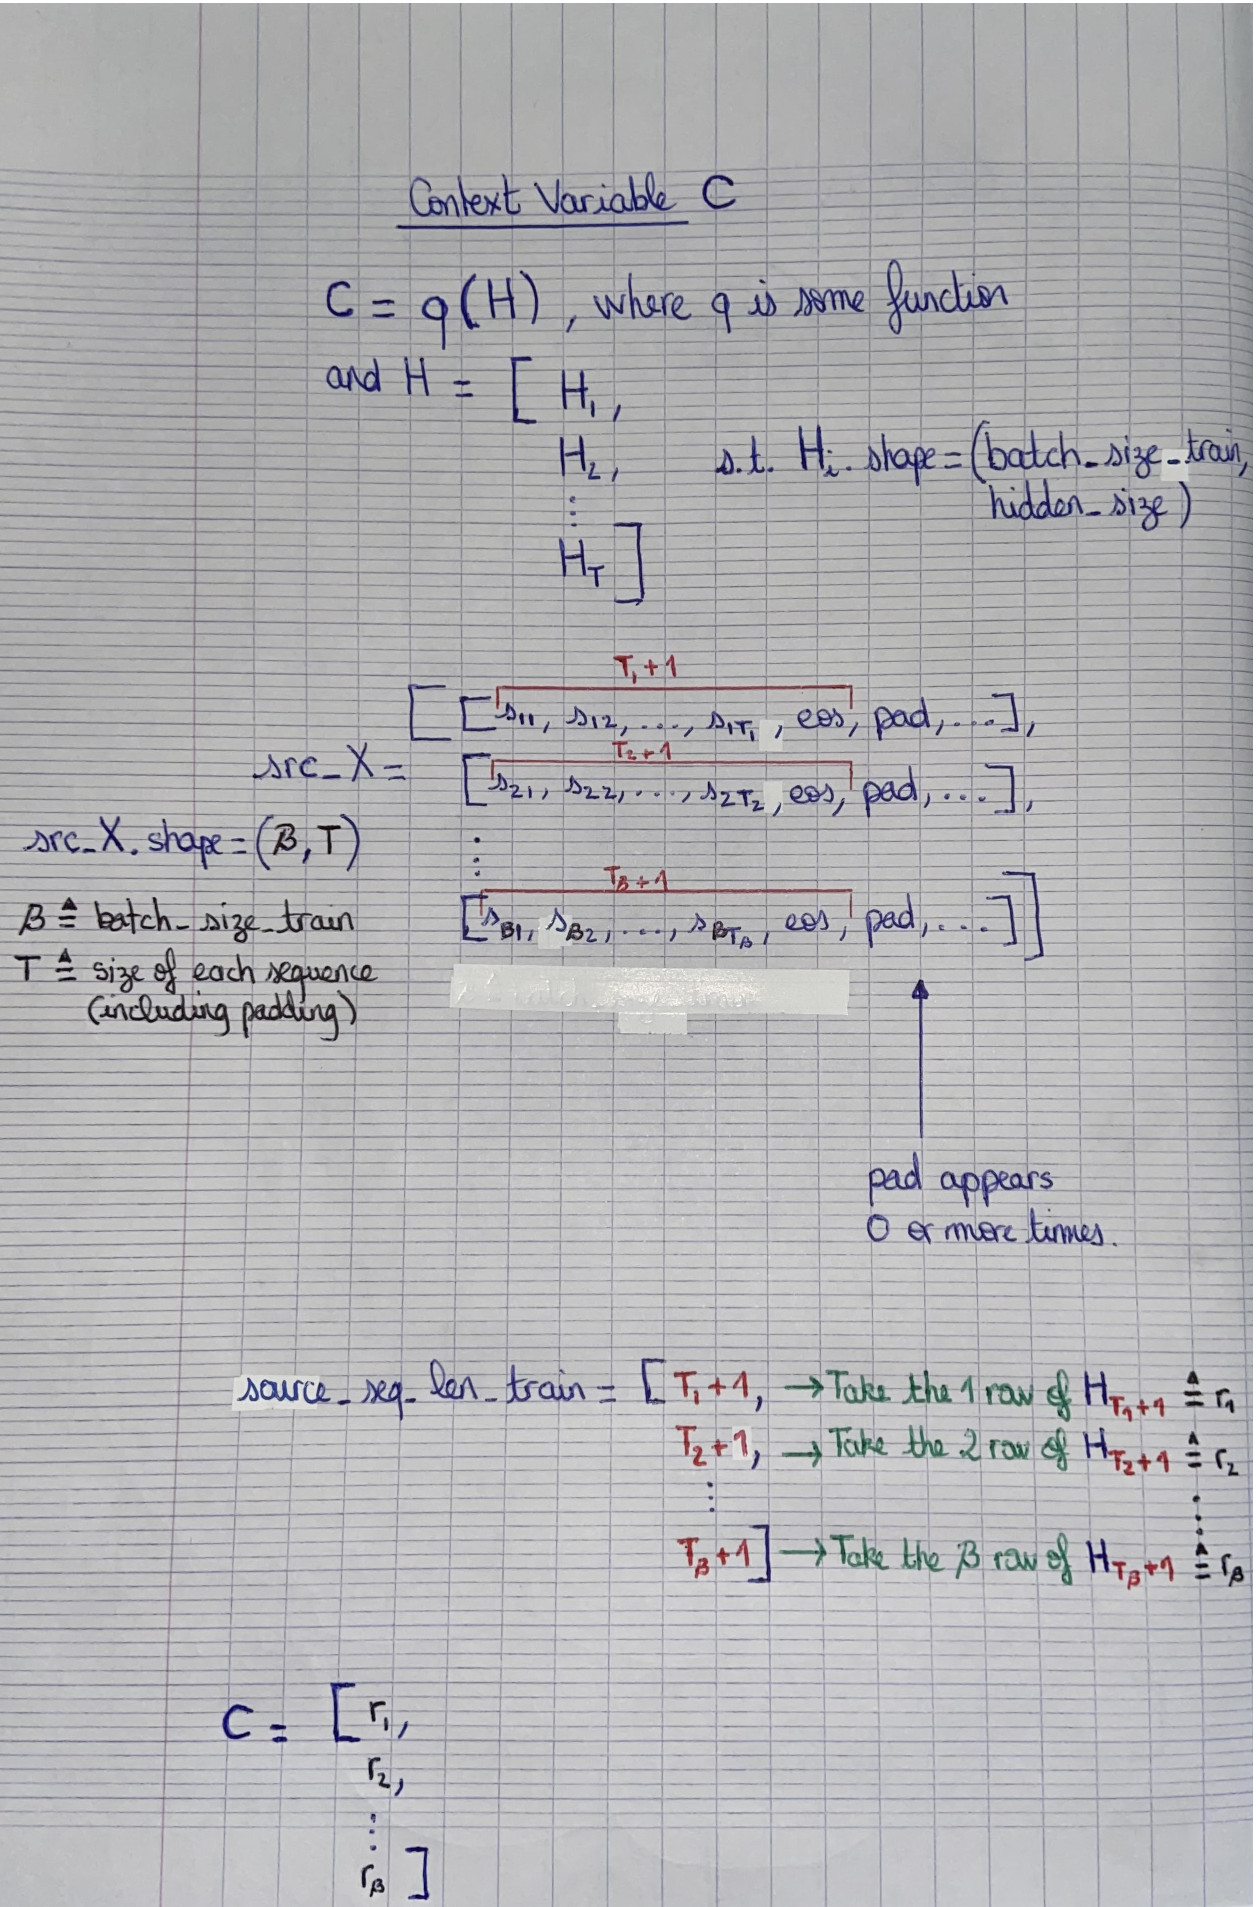 Context Variable C
C = q(H), where q is some function
and H = [ H₁,
H₂, s.t. Hᵢ.shape = (batch_size_train,
hidden_size)
⋮
H_T ]
T₁+1
[ [s₁₁, s₁₂, ..., s₁T₁, eos, pad, ...],
T₂+1
src_X =
[s₂₁, s₂₂, ..., s₂T₂, eos, pad, ...],
src_X.shape = (B, T)
⋮
T_B+1
B ≜ batch_size_train
[s_B1, s_B2, ..., s_BT_B, eos, pad, ...] ]
T ≜ size of each sequence
(including padding)
pad appears
0 or more times.
source_seq_len_train = [ T₁+1, → Take the 1 row of H_T₁+1 ≜ r₁
T₂+1, → Take the 2 row of H_T₂+1 ≜ r₂
⋮ ⋮
T_B+1 ] → Take the B row of H_T_B+1 ≜ r_B
C = [ r₁,
r₂,
⋮
r_B ]